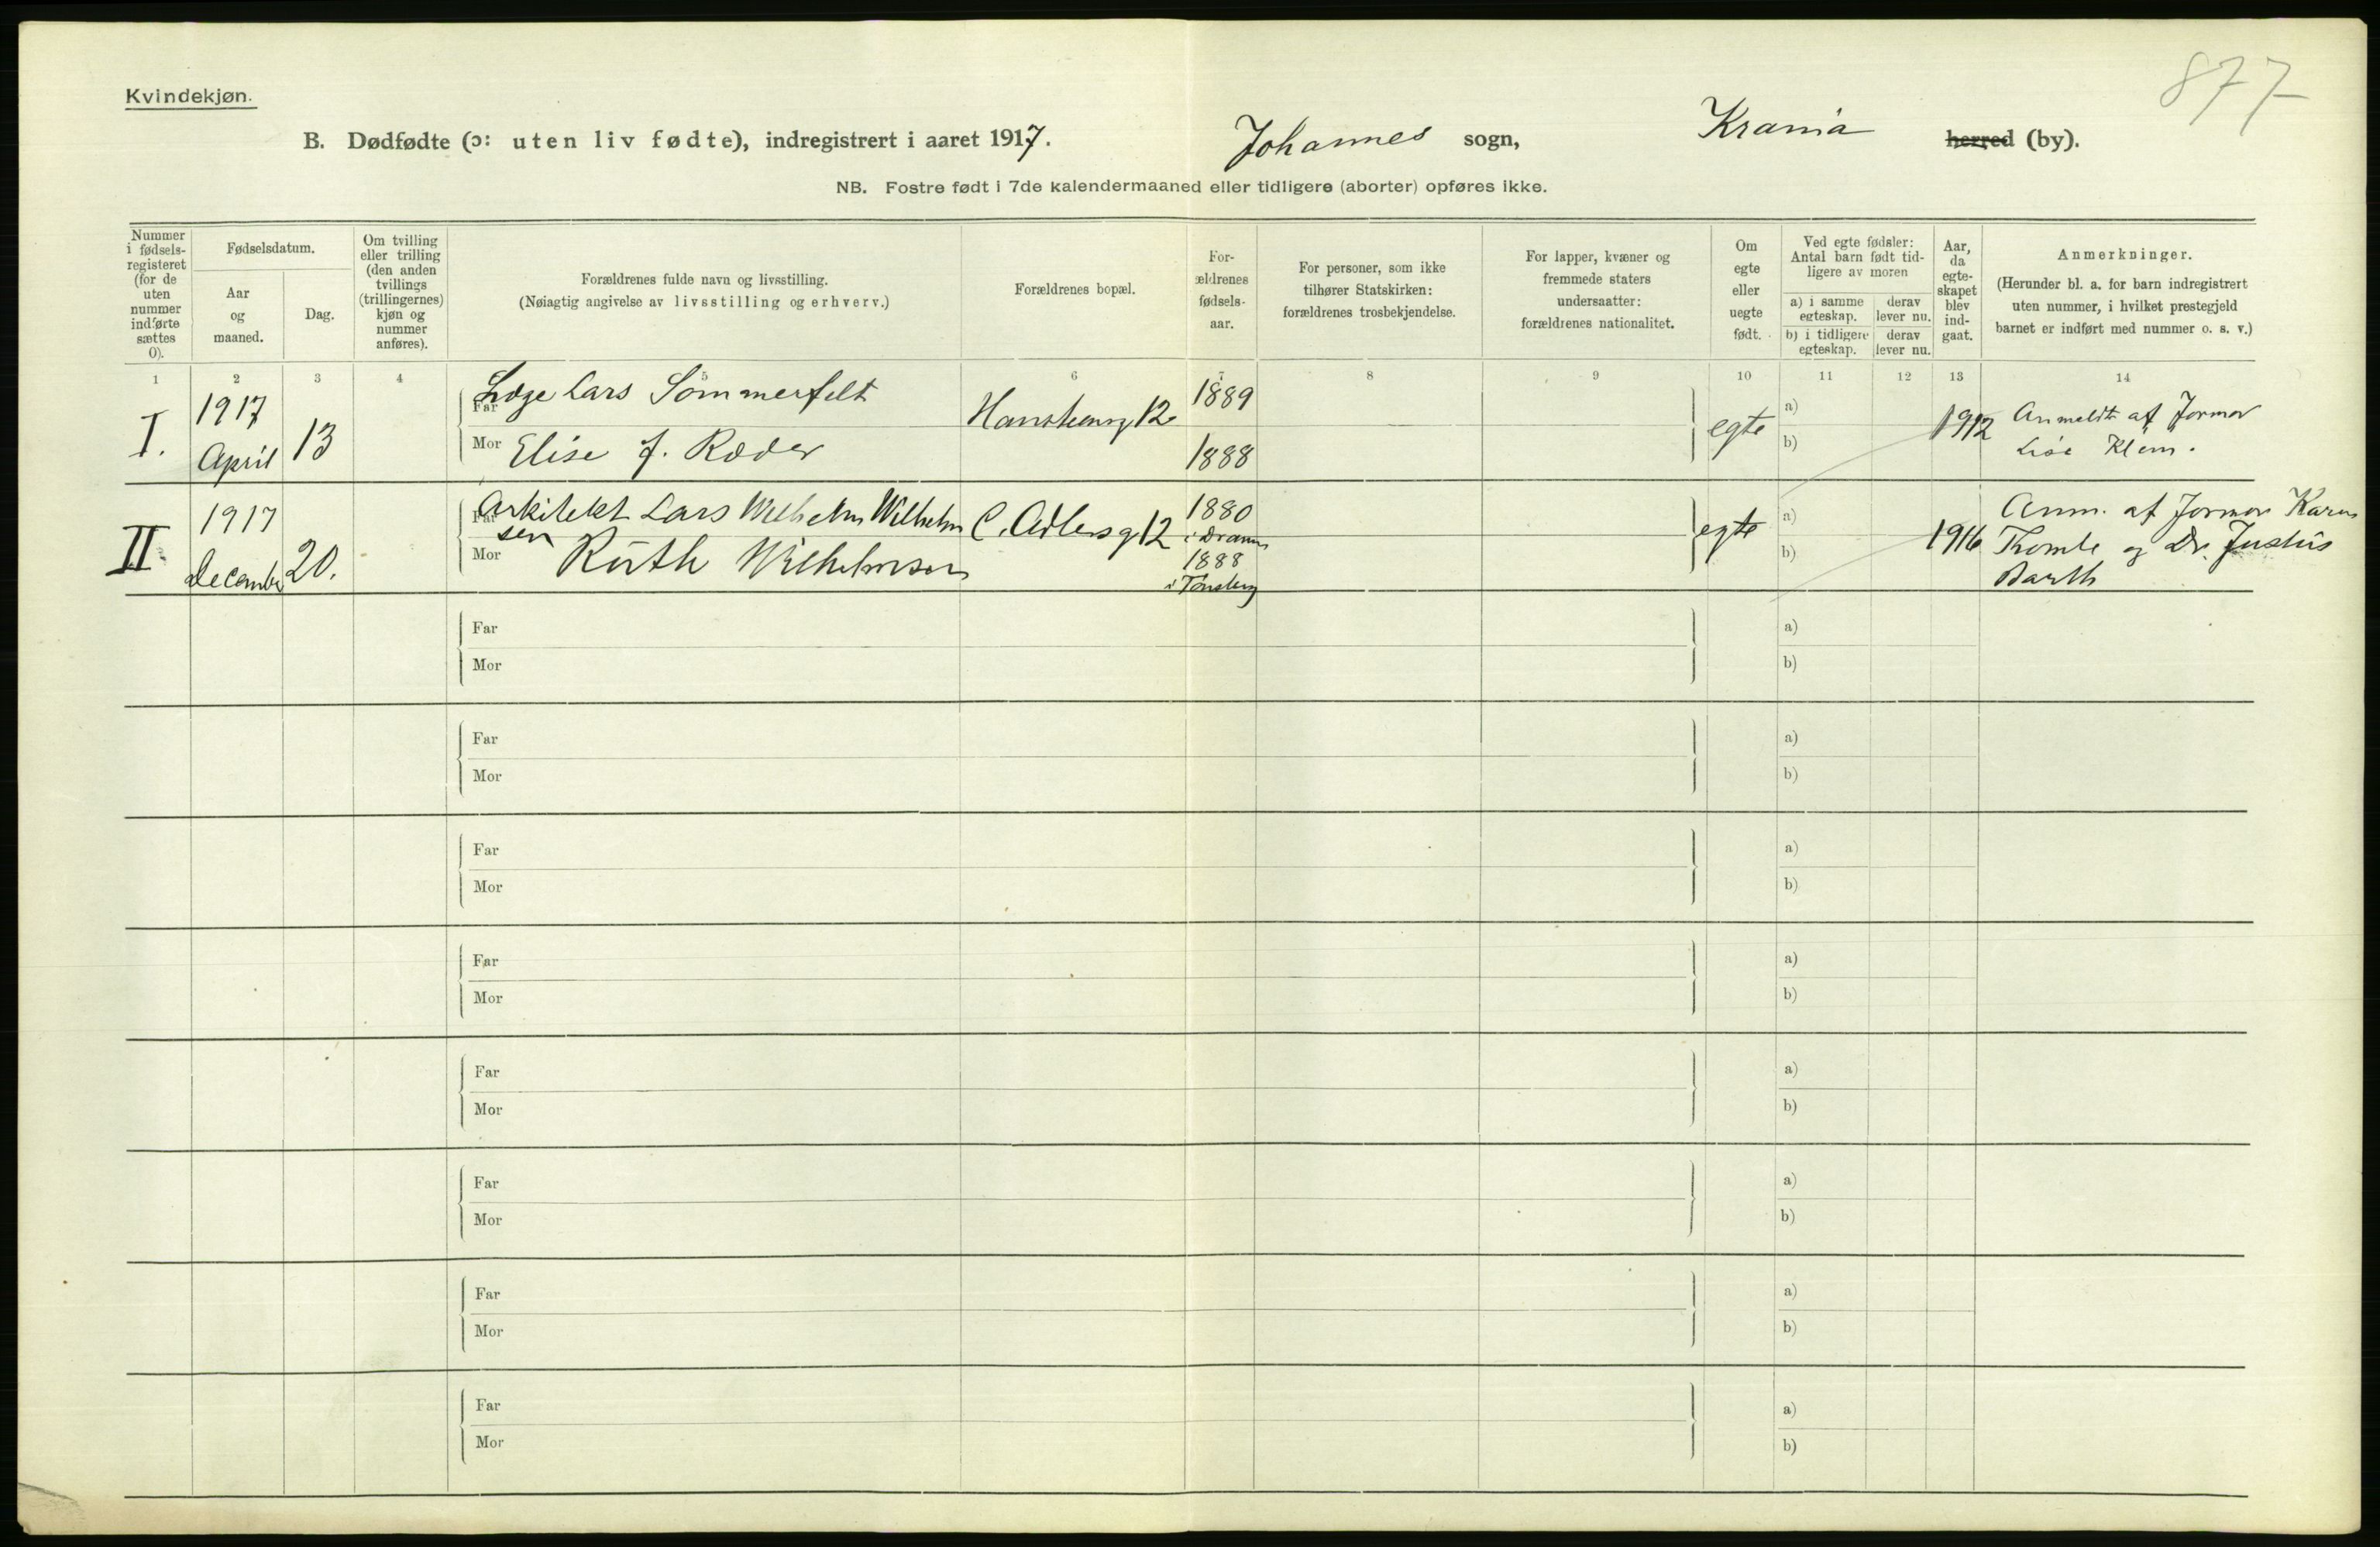 877
Kvindekjøn.
B. Dødfødte (ɔ: uten liv fødte), indregistrert i aaret 1917. Johannes sogn, Krania herred (by).
NB. Fostre født i 7de kalendermaaned eller tidligere (aborter) opføres ikke.
Nummer i fødsels-registeret (for de uten nummer indførte sættes 0).
Fødselsdatum.
Aar og maaned.
Dag.
Om tvilling eller trilling (den anden tvillings (trillingernes) kjøn og nummer anføres).
Forældrenes fulde navn og livsstilling.
(Nøiagtig angivelse av livsstilling og erhverv.)
Forældrenes bopæl.
For-ældrenes fødsels-aar.
For personer, som ikke tilhører Statskirken: forældrenes trosbekjendelse.
For lapper, kvæner og fremmede staters undersaatter: forældrenes nationalitet.
Om egte eller uegte født.
Ved egte fødsler: Antal barn født tid-ligere av moren
a) i samme egteskap.
derav lever nu.
b) i tidligere egteskap.
derav lever nu.
Aar, da egte-skapet blev ind-gaat.
Anmerkninger.
(Herunder bl. a. for barn indregistrert uten nummer, i hvilket prestegjeld barnet er indført med nummer o. s. v.)
1 2 3 4 5 6 7 8 9 10 11 12 13 14
I. 1917 April 13
Far Læge Lars Sømmerfelt
Mor Elise J. Ræder
Hansteensg 12
1889
1888
egte
a)
b)
1912
Anmeldt af Jormor
Lise Klem.
II. 1917 December 20.
Far Arkitekt Lars Wilhelm Wilhelm
sen
Mor Ruth Wilhelmsen
C. Adlersg 12
1880
i Dramn
1888
i Tønsberg
egte
a)
b)
1916
Anm. af Jormor Karen
og Dr. Justus
Barth
Far a)
Mor b)
Far a)
Mor b)
Far a)
Mor b)
Far a)
Mor b)
Far a)
Mor b)
Far a)
Mor b)
Far a)
Mor b)
Far a)
Mor b)